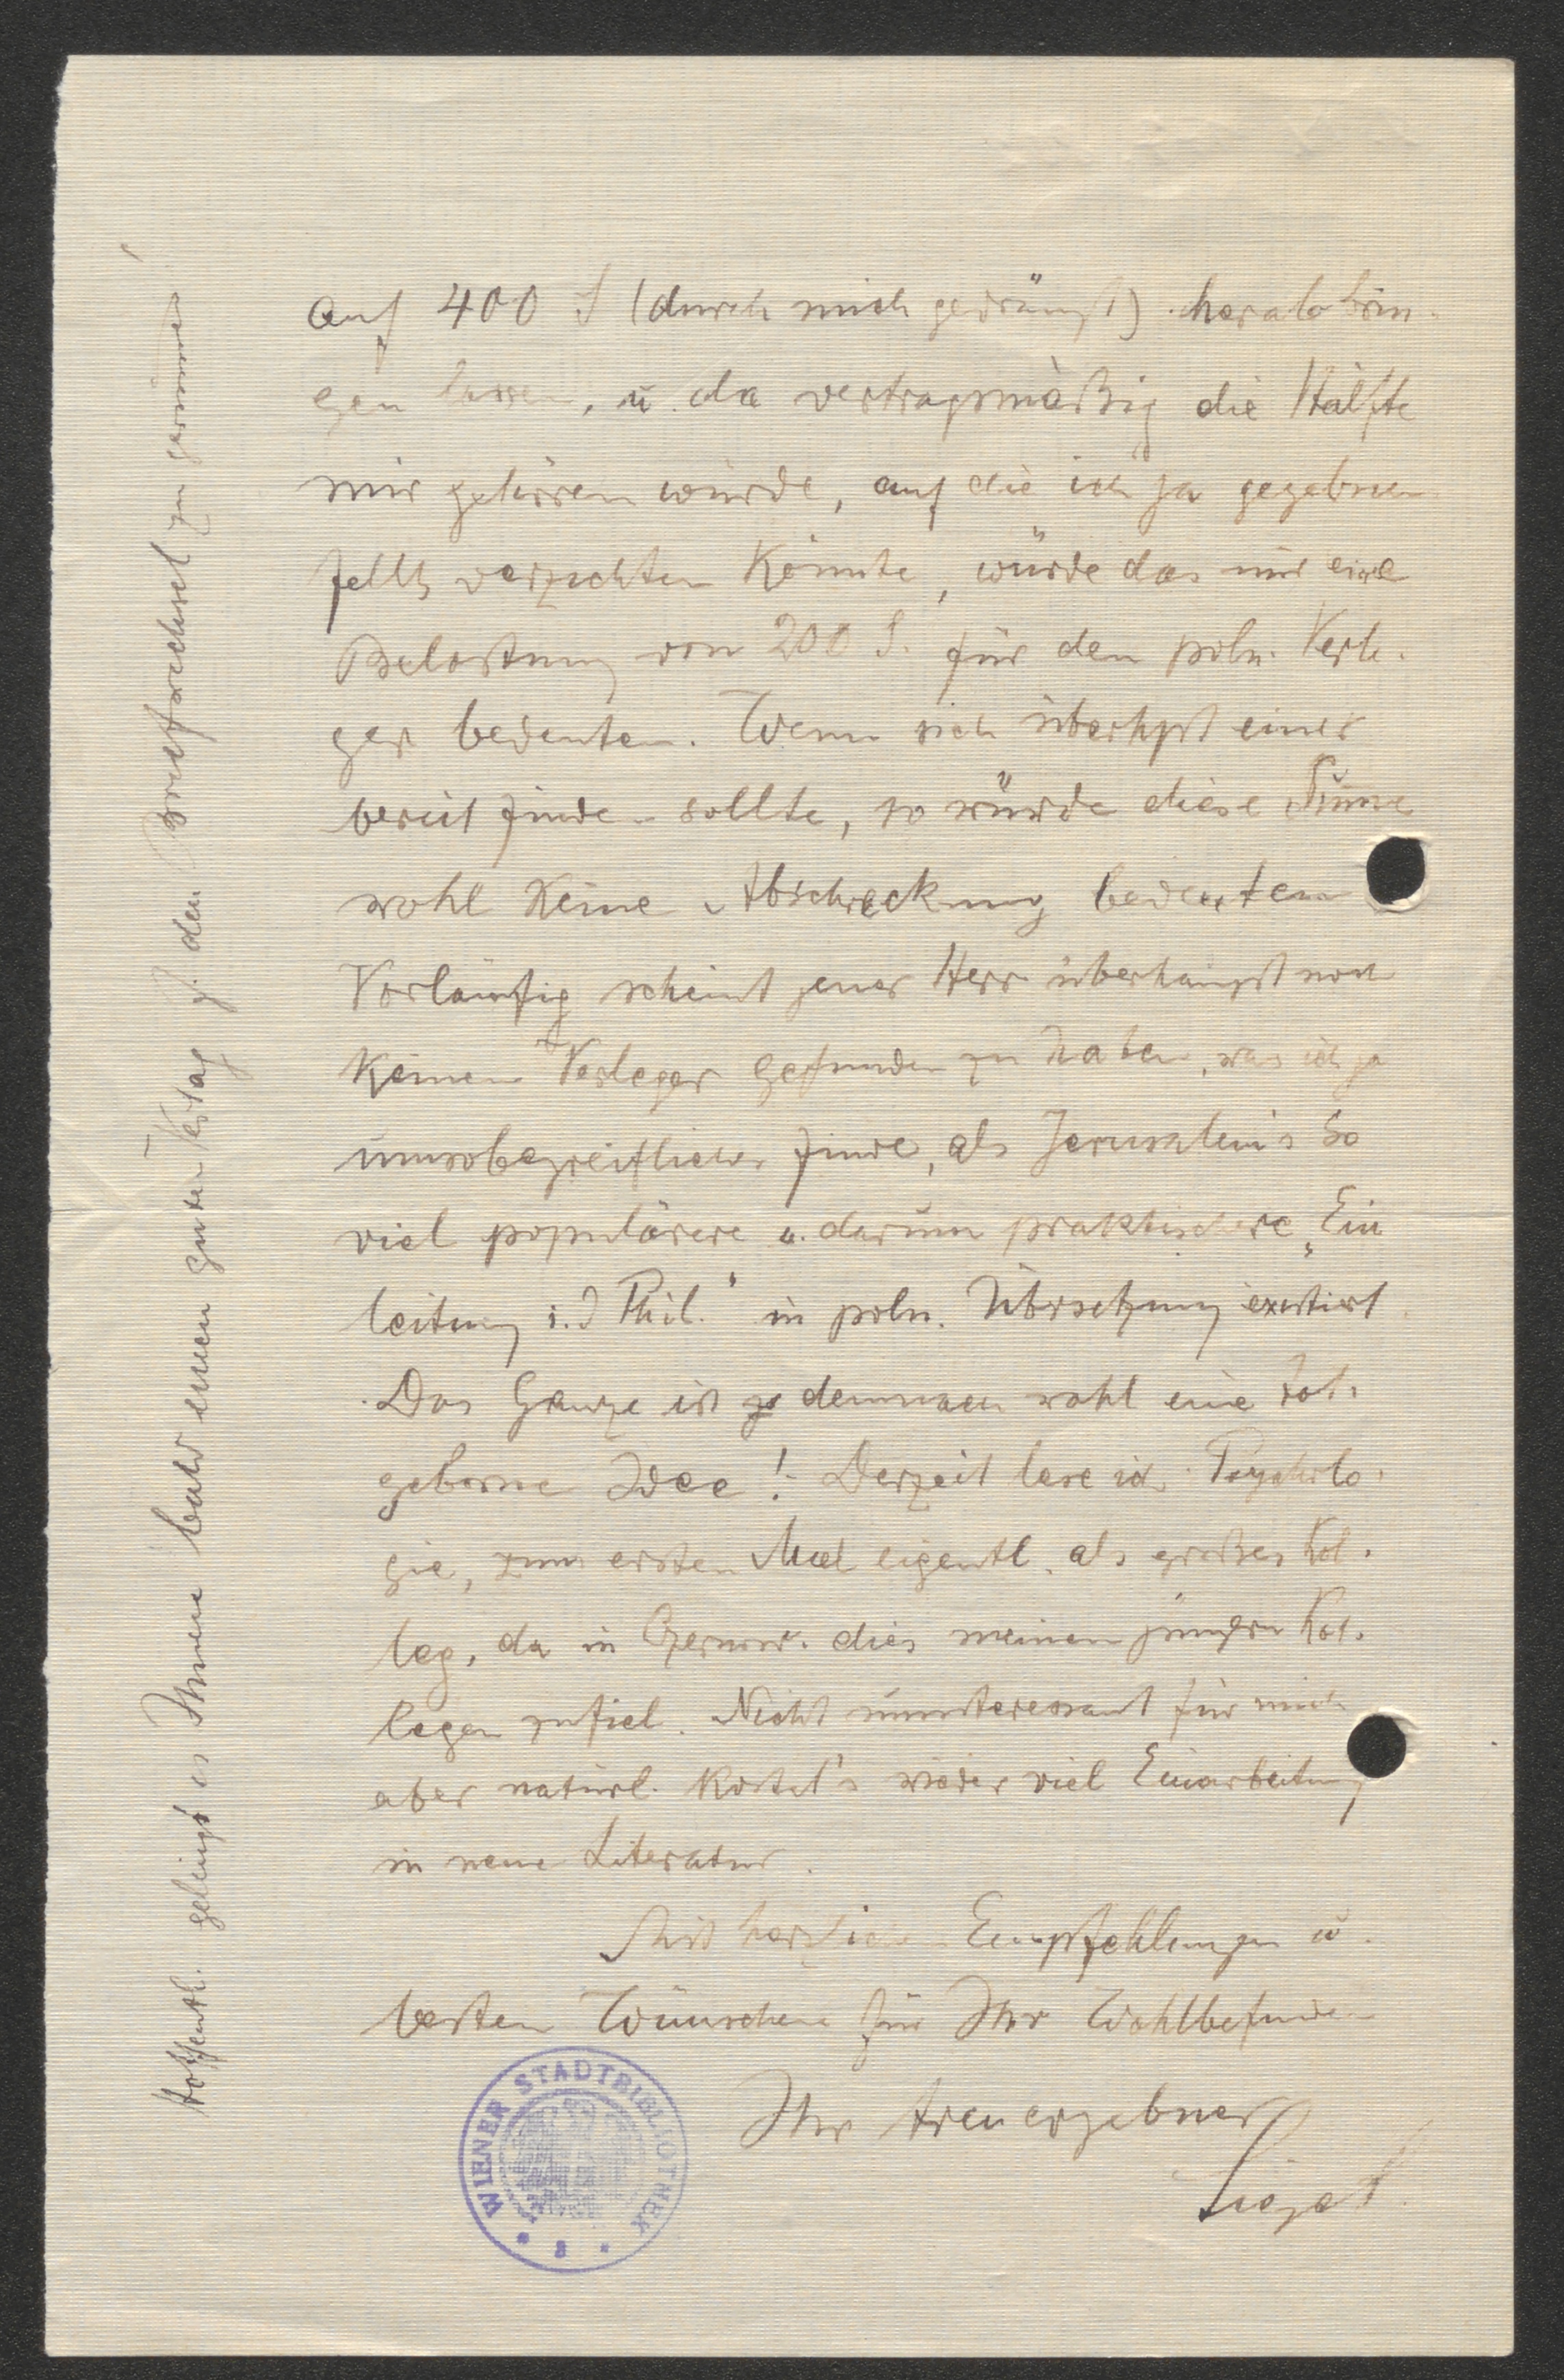 auf 400 S (durch mich gedrängt) herabbrin-
gen lassen, u. da vertragsmäßig die Hälfte
mir gehören würde, auf die ich ja gegebnen
falls verzichten könnte, würde das nur eine
Belastung von 200 S. für den poln. Verle-
ger bedeuten. Wenn sich überhpt einer
bereit finden sollte, so würde diese Summe
wohl keine Abschreckung bedeuten
Vorläufig scheint jener Herr überhaupt noch
keinen Verleger gefunden zu haben, was ich ja
umso begreiflicher finde, als Jerusalem's so
viel populärere u. darum praktischere „Ein
leitung i. d Phil." in poln. Übersetzung existiert
Das Ganze ist demnach wohl eine tot-
geborne Idee! - Derzeit lese ich Psycholo-
gie, zum ersten Mal eigentl. als großes Kol-
leg, da in Czernow. dies meinem jüngern Kol-
legen zufiel. Nicht uninteressant für mich
aber natürl. kostet's wieder viel Einarbeitung
in neue Literatur.
Mit herzlichen Empfehlungen u.
besten Wünschen für Ihr Wohlbefinden
Ihr treuergebner
Siegel
Hoffentl. gelingt es Ihnen bald einen guten Verlag f. den Briefwechsel zu gewinnen
WIENER STADTBIBLIOTHEK